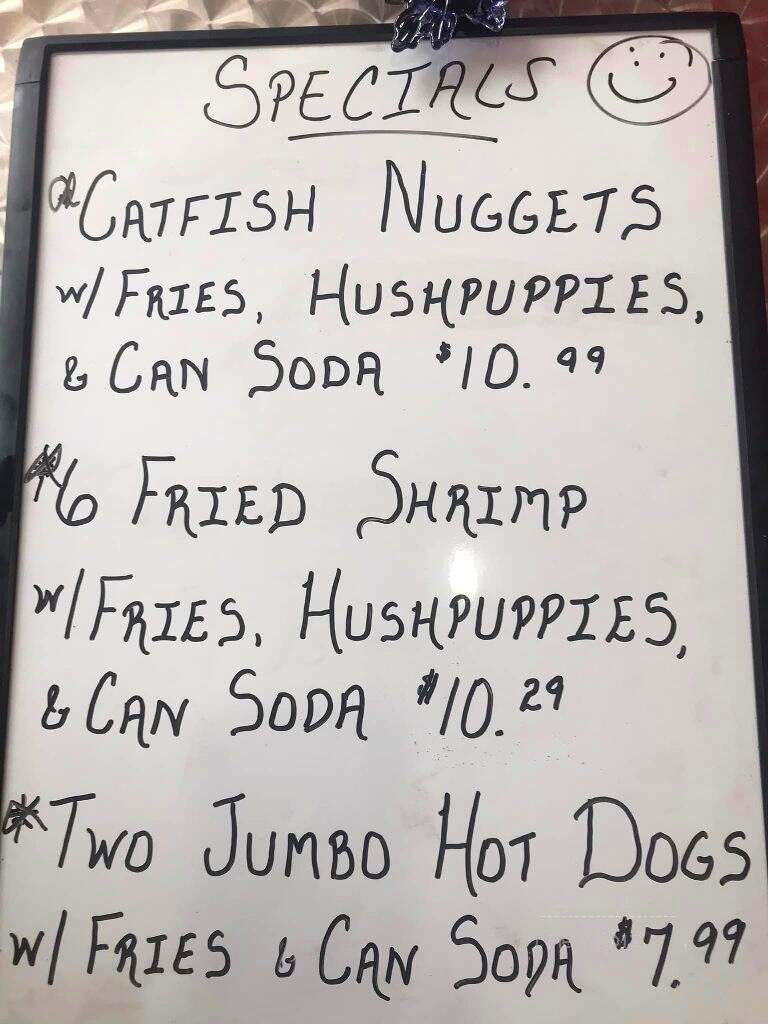 SPECIALS
* CATFISH NUGGETS
w/ FRIES, HUSHPUPPIES,
& CAN SODA $10.99
* 6 FRIED SHRIMP
w/ FRIES, HUSHPUPPIES,
& CAN SODA $10.29
* TWO JUMBO HOT DOGS
w/ FRIES & CAN SODA $7.99